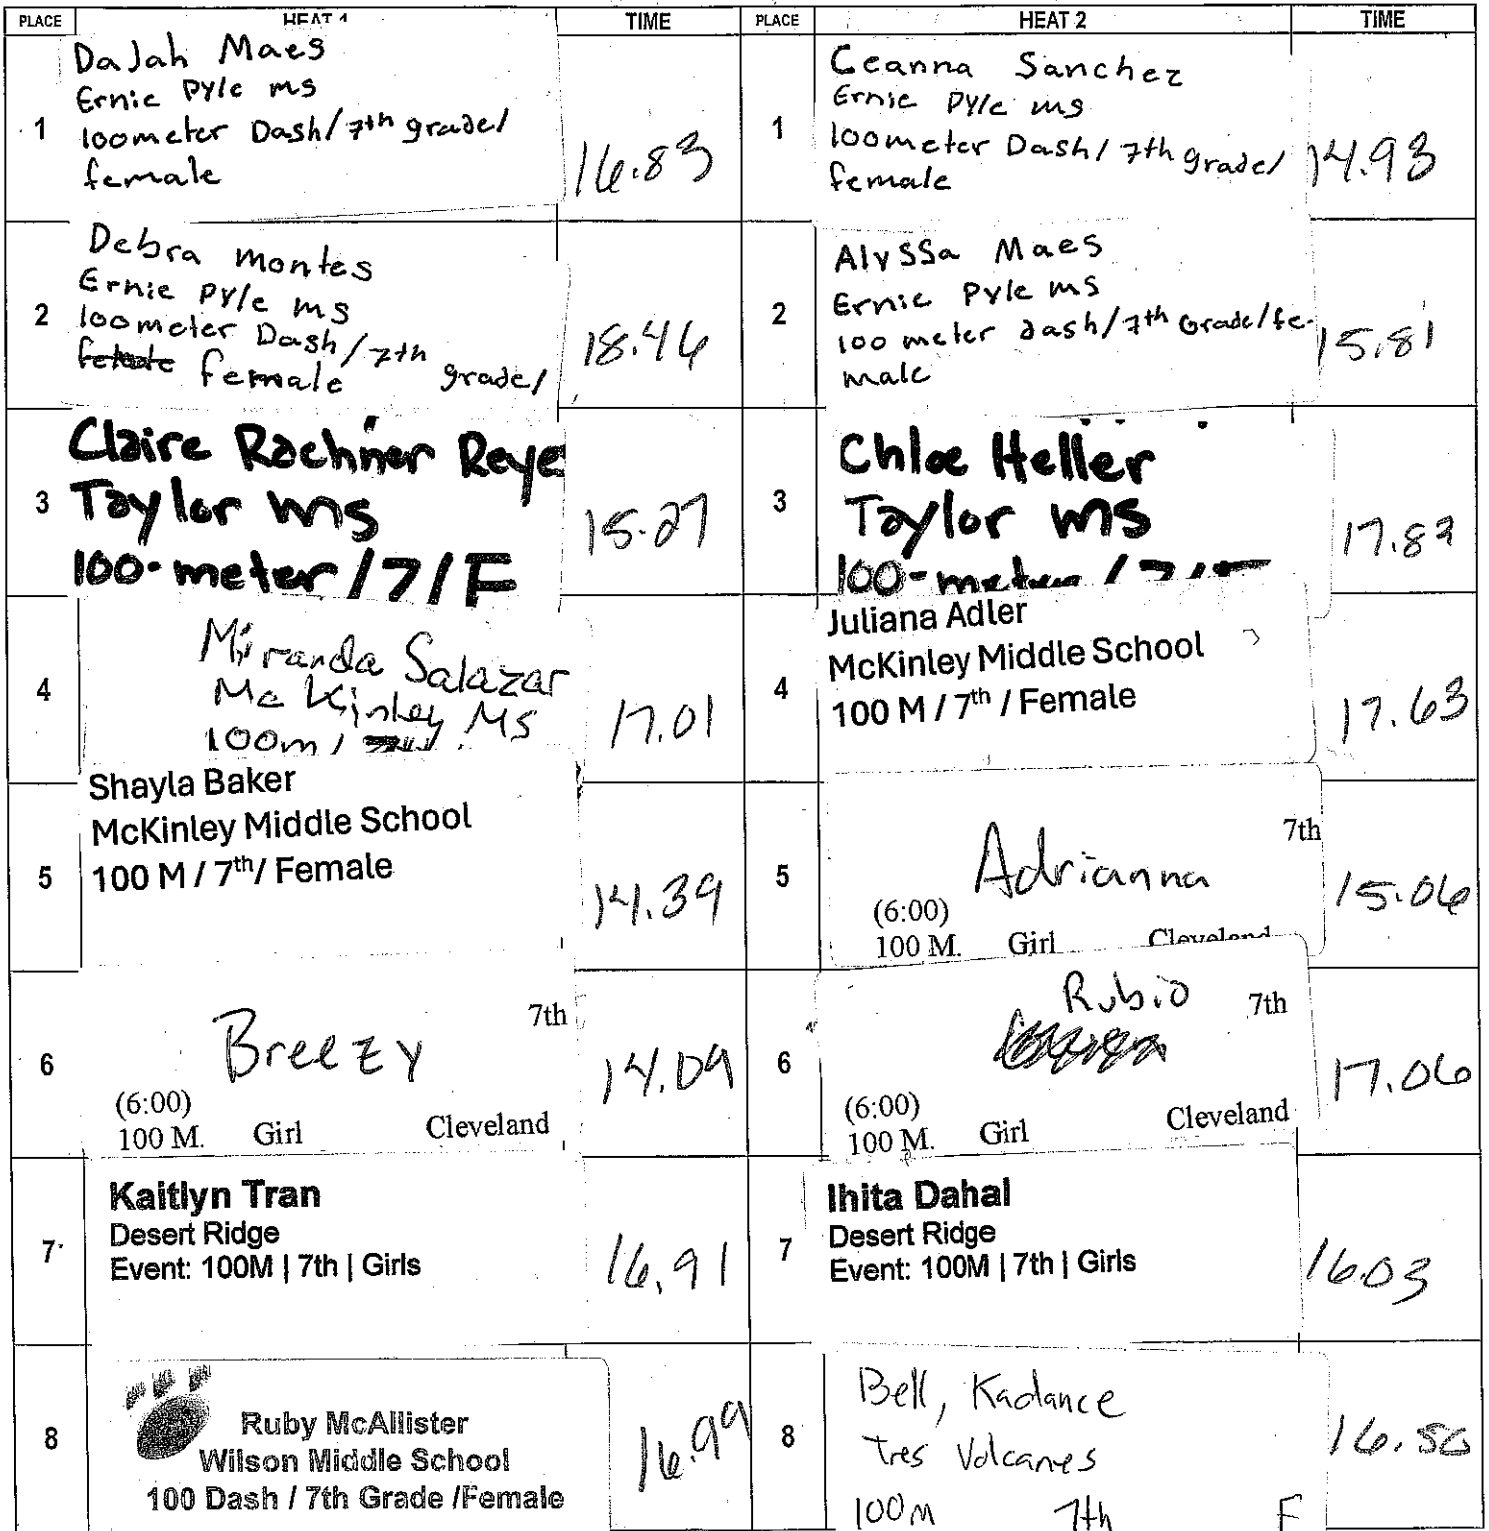 PLACE HEAT 1 TIME PLACE HEAT 2 TIME
1
DaJah Maes
Ernie Pyle ms
100meter Dash/7th grade/
female
16.83
1
Ceanna Sanchez
Ernie Pyle ms
100meter Dash/7th grade/
female
14.93
2
Debra montes
Ernie Pyle ms
100meter Dash/7th grade/
female
18.46
2
Alyssa Maes
Ernie Pyle ms
100 meter dash/7th Grade/fe-
male
15.81
3
Claire Rachner Reye
Taylor ms
100-meter/7/F
15.27
3
Chloe Heller
Taylor ms
100-meter /7/F
17.83
4
Miranda Salazar
McKinley MS
100m/
17.01
4
Juliana Adler
McKinley Middle School
100 M / 7th / Female
17.63
5
Shayla Baker
McKinley Middle School
100 M / 7th/ Female
14.39
5
7th
Adrianna
(6:00)
100 M. Girl Cleveland
15.06
6
7th
Breezy
(6:00)
100 M. Girl Cleveland
14.09
6
Rubio 7th
(6:00)
100 M. Girl Cleveland
17.06
7
Kaitlyn Tran
Desert Ridge
Event: 100M | 7th | Girls
16.91
7
Ihita Dahal
Desert Ridge
Event: 100M | 7th | Girls
16.03
8
Ruby McAllister
Wilson Middle School
100 Dash / 7th Grade /Female
16.99
8
Bell, Kadance
Tres Volcanes
100m 7th F
16.56